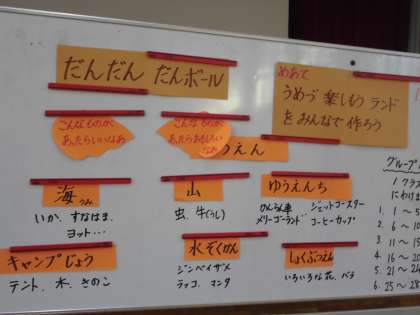 だんだん だんボール
めあて
うめづ 楽しもう ランド
をみんなで 作ろう
こんなものが、
あったらいいなあ
こんなものが
あったらおもしろい
なあ
うえん
海 うみ
いか、すなはま、
ヨット…
山
虫、牛(うし)
ゆうえんち
かんらん車 ジェットコースター
メリーゴーランド コーヒーカップ
キャンプじょう
テント、木、きのこ
水ぞくかん
ジンベイザメ
ラッコ、マンタ
しょくぶつえん
いろいろな花、バラ
グループ
1クラス
にわけま
1. 1～5
2. 6～10
3. 11～15
4. 16～20
5. 21～2
6. 25～28